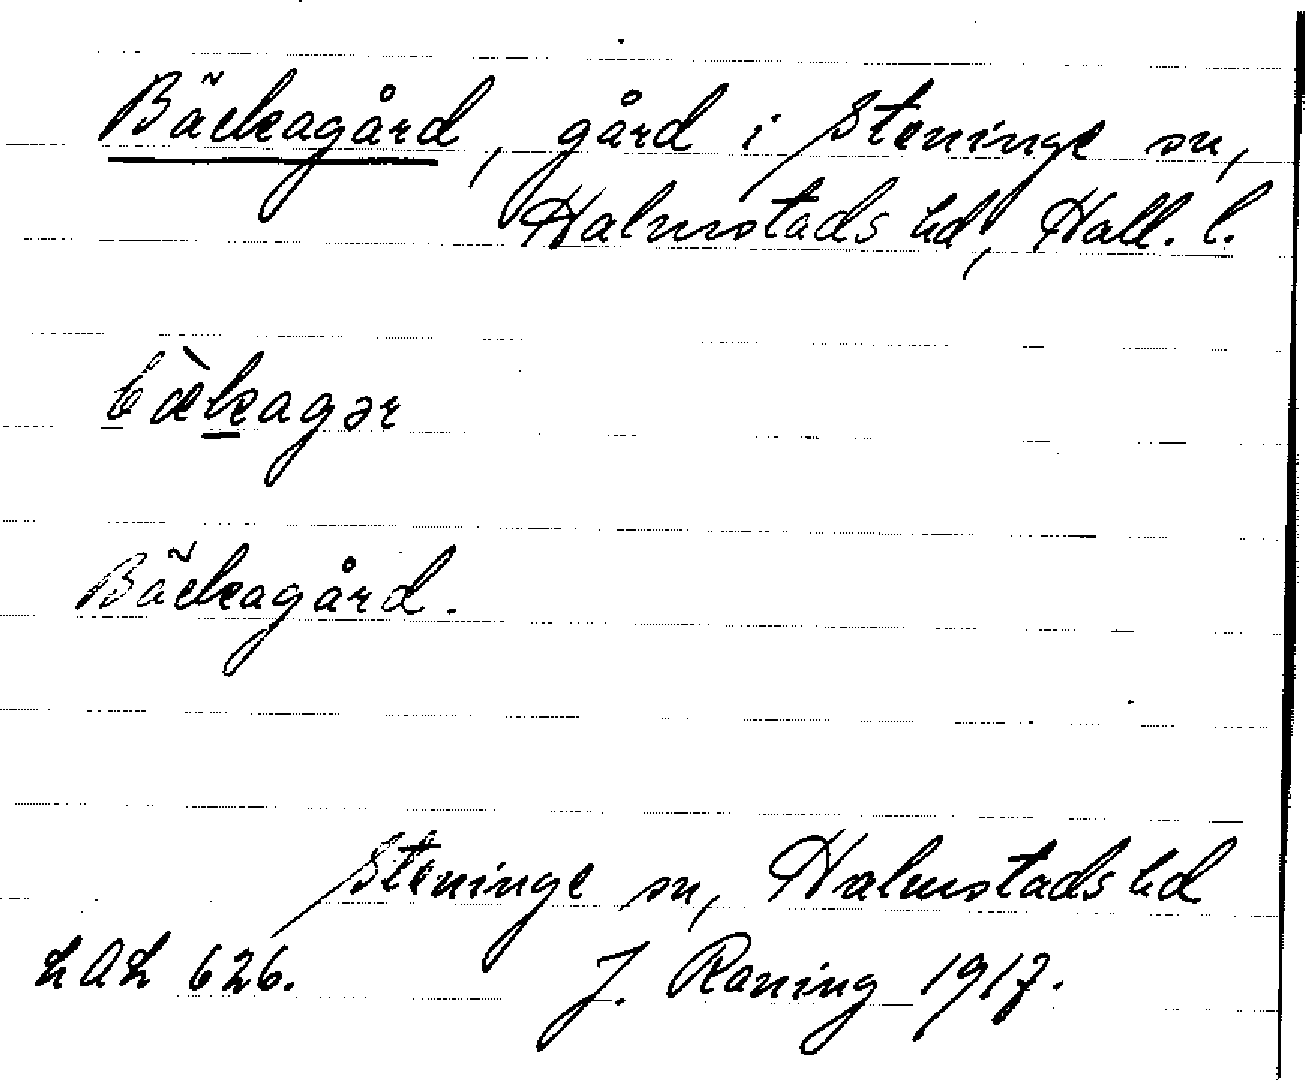 Bäckagård, gård i Steninge sn,
Halmstads hd, Hall. l.
bæ̀kagər
Bäckagård.
Steninge sn, Halmstads hd
LAL 626. J. Raning 1917.